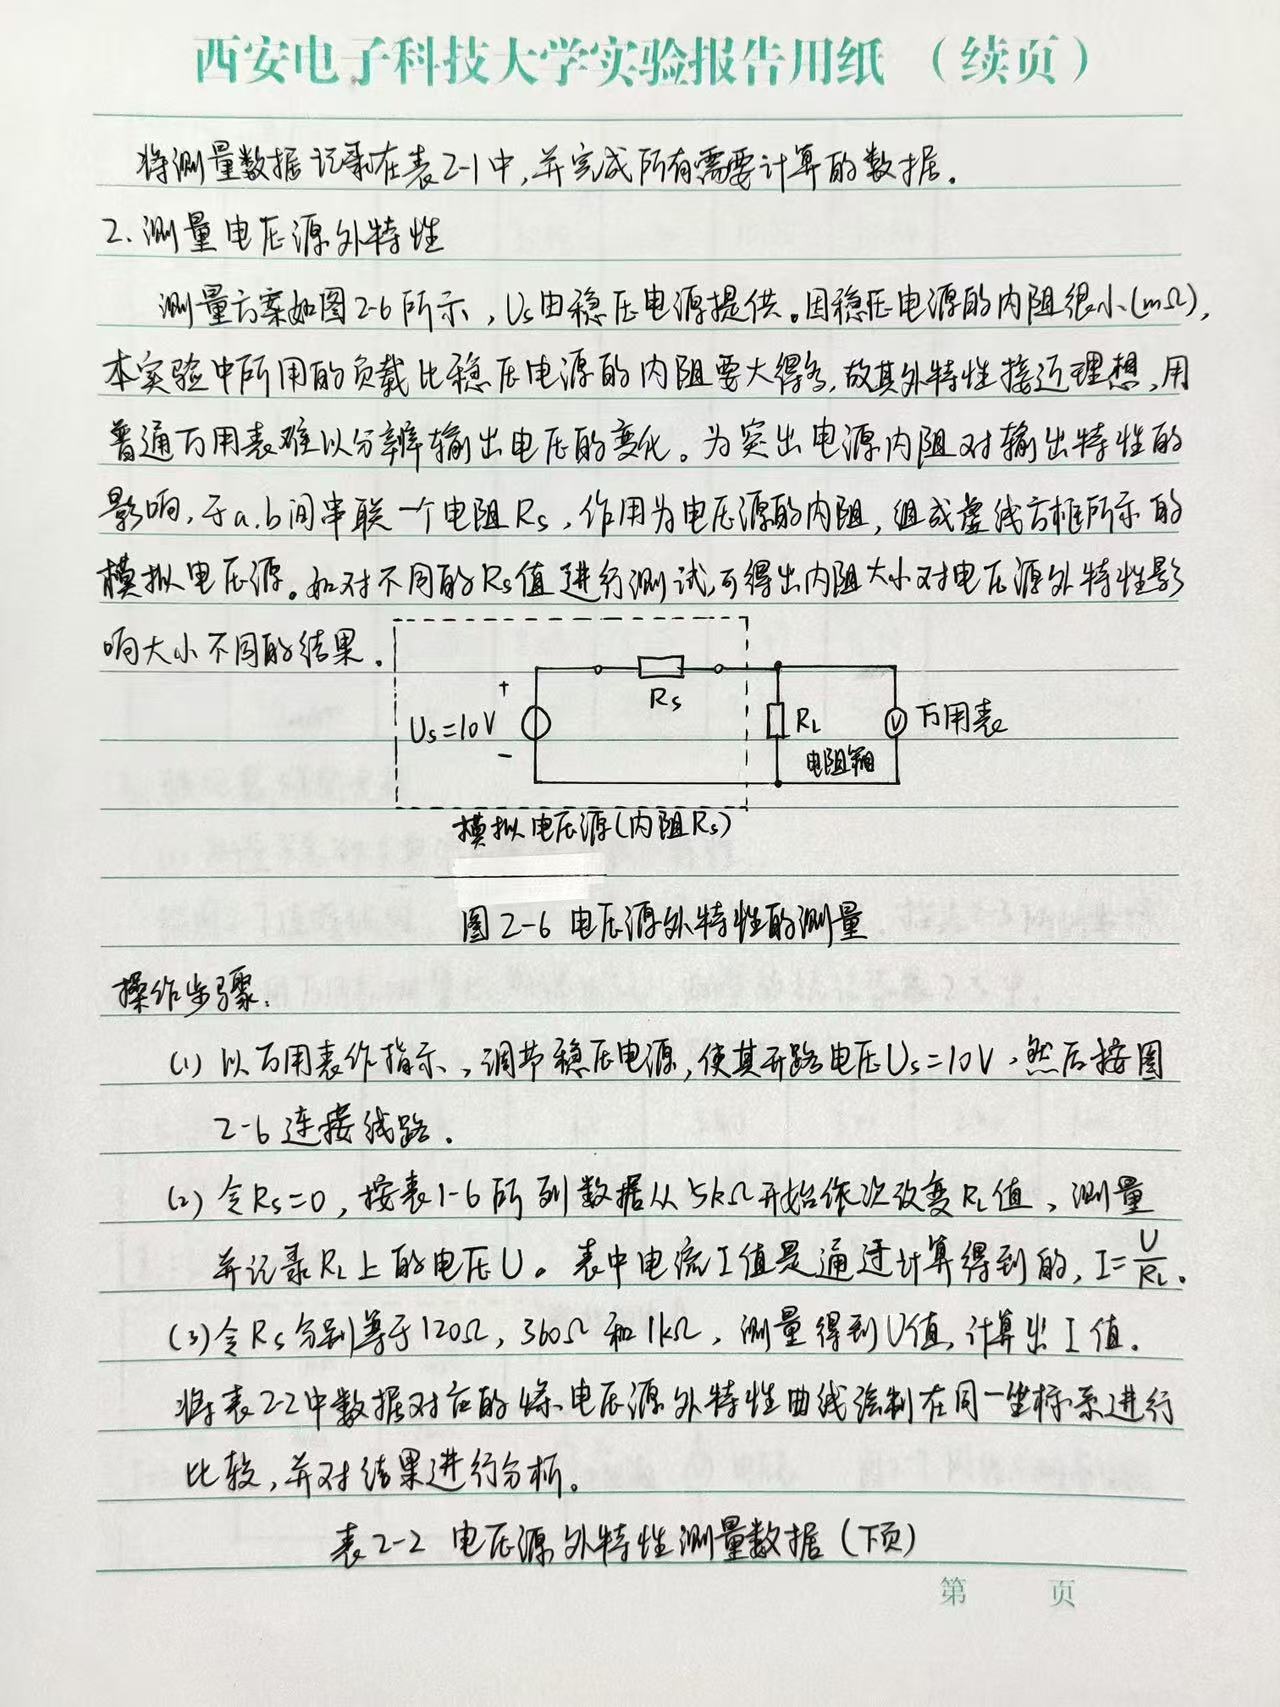 西安电子科技大学实验报告用纸 （续页）
将测量数据记录在表2-1中,并完成所有需要计算的数据.
2.测量电压源外特性
测量方案如图2-6所示,Us由稳压电源提供。因稳压电源的内阻很小(mΩ),
本实验中所用的负载比稳压电源的内阻要大得多,故其外特性接近理想,用
普通万用表难以分辨输出电压的变化。为突出电源内阻对输出特性的
影响,于a.b间串联一个电阻Rs,作用为电压源的内阻,组成虚线方框所示的
模拟电压源。如对不同的Rs值进行测试,可得出内阻大小对电压源外特性影
响大小不同的结果.
+
Rs
Us=10V
-
RL
电阻箱
V
万用表
模拟电压源(内阻Rs)
图2-6 电压源外特性的测量
操作步骤:
(1)以万用表作指示,调节稳压电源,使其开路电压Us=10V.然后接图
2-6连接线路.
(2)令Rs=0,按表1-6所列数据从5kΩ开始依次改变RL值,测量
并记录RL上的电压U。表中电流I值是通过计算得到的,I=U/RL。
(3)令Rs分别等于120Ω,360Ω和1kΩ,测量得到U值,计算出I值.
将表2-2中数据对应的条电压源外特性曲线绘制在同一坐标系进行
比较,并对结果进行分析。
表2-2 电压源外特性测量数据(下页)
第 页